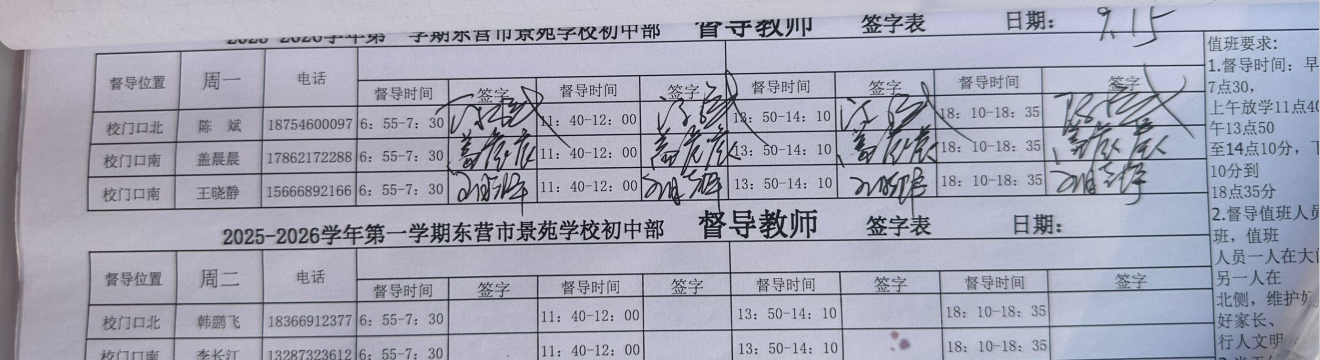 2025-2026学年第一学期东营市景苑学校初中部 督导教师 签字表 日期: 9.15
督导位置 周一 电话
督导时间 签字 督导时间 签字 督导时间 签字 督导时间 签字
校门口北 陈 斌 18754600097 6: 55-7: 30 陈斌 11: 40-12: 00 陈斌 13: 50-14: 10 陈斌 18: 10-18: 35 陈斌
校门口南 盖晨晨 17862172288 6: 55-7: 30 盖晨晨 11: 40-12: 00 盖晨晨 13: 50-14: 10 盖晨晨 18: 10-18: 35 盖晨晨
校门口南 王晓静 15666892166 6: 55-7: 30 11: 40-12: 00 13: 50-14: 10 18: 10-18: 35
2025-2026学年第一学期东营市景苑学校初中部 督导教师 签字表 日期:
督导位置 周二 电话
督导时间 签字 督导时间 签字 督导时间 签字 督导时间 签字
校门口北 韩鹏飞 18366912377 6: 55-7: 30 11: 40-12: 00 13: 50-14: 10 18: 10-18: 35
校门口南 李长江 13287323612 6: 55-7: 30 11: 40-12: 00 13: 50-14: 10 18: 10-18: 35
值班要求:
1.督导时间: 早
7点30,
上午放学11点40
午13点50
至14点10分, 下
10分到
18点35分
2.督导值班人员
班, 值班
人员一人在大门
另一人在
北侧, 维护好
好家长、
行人文明